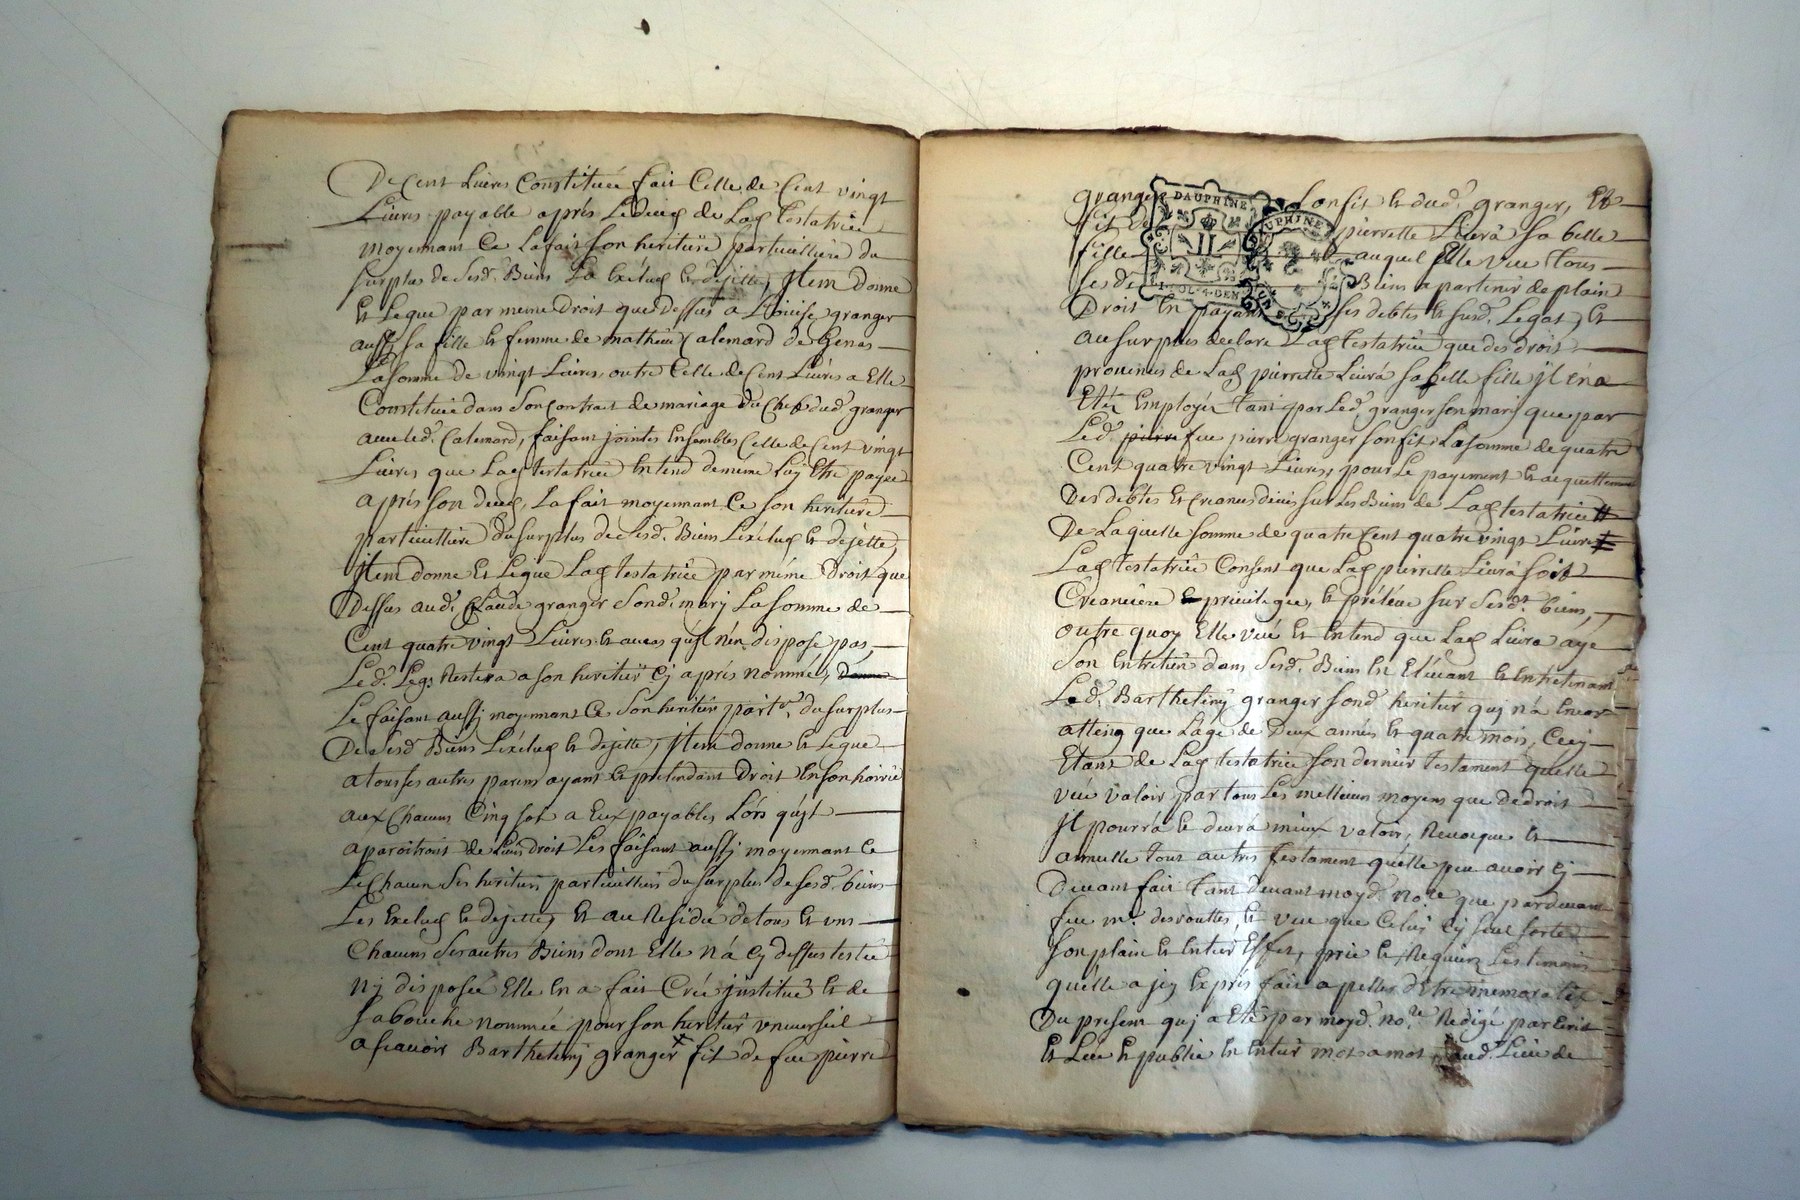 De Cent Livres Constituée fait Celle de Cent vingt
Livres payable après Le deces de Lad Testatrice
moyennant Ce La fait son heritiere particulliere du
surplus de Sesd. Biens La Exclus et dejette, Item donne
Et Legue par meme Droit que Dessus a Louise granger
aussy sa fille et femme de mathieu Calemard de Genas
La somme de vingt Livres outre Celle de Cent Livres a Elle
Constituée dans Son Contrat de mariage du Chef dud granger
avec led. Calemard, faisant jointes Ensembles Celle de Cent vingt
Livres que Lad testatrice Entend de méme Luy Etre payée
aprés son deces, La fait moyennant Ce son heritiere
particulliere du surplus de Sesd. Biens L'exclus et dejette,
Item donne Et Legue Lad Testatrice par méme Droit que
Dessus aud. Claude granger Sond. mary La somme de
Cent quatre vingt Livres et au cas qu'il n'en dispose pas,
Led. Legs Restera a son heritier Cy aprés nommé,
Le faisant aussy moyennant Ce Son heritier part.er du surplus
De Sesd Biens L'exclus et dejette, Item donne et Legue
a tous ses autres parens ayant et pretendant Droit En son hoirie
aux Chacuns Cinq sols a Eux payables Lors qu'il
aparoitront de Leurs droit Les faisant aussy moyennant Ce
Le Chacun Ses heritiers particulliers du surplus de sesd. biens
Les Exclus et dejette, Et au Residu de tous et uns
Chacuns Ses autres Biens dont Elle n'a Cy dessus testée
ny disposée Elle En a fait Créé institué et de
sa bouche nommée pour son heritier universel
a scavoir Barthelemy granger fils de feu pierre
granger son fils et dud. granger, Et
fils de pierrette Livra sa belle
fille auquel Elle veut tous
sesd Biens apartenir de plain
Droit En payant ses debtes et susd. Legat, et
au surplus declare Lad Testatrice que des droit
provenus de Lad pierrette Livra sa belle fille Il en a
Etéz Employéz Tant par Led. granger son mary que par
Led. pierre feu pierre granger son fils La somme de quatre
Cent quatre vingt Livres, pour Le payement et acquittement
Des debtes et Creances deües sur Les Biens de Lad testatrice
De Laquelle somme de quatre Cent quatre vingt Livres
Lad testatrice Consent que Lad pierrette Livra soit
Créanciere privilegiée, et préléve sur Sesd. biens,
outre quoy Elle veut et Entend que Lad Livra aye
Son Entretien dans Sesd. Biens En Elevant et Entretenant
Led. Barthelemy granger sond heritier qui n'a Encor
atteing que Lage de Deux années et quatre mois, Cecy
Etant de Lad testatrice son dernier testament quelle
veut valoir par tous Les meilleurs moyens que de droit
Il pourrà et devrà mieux valoir, Revoque et
annulle tout autres Testament qu'elle peu avoir Cy
Devant fait Tant devant moyd. No.re que pardevant
feu m.e desrouttes, et veut que Celuy Cy seul sorte
son plain et Entier Effet, prie et Requiert Les temoins
qu'elle a jcy Exprés fait apeller d'Etre memoratifs
Du present quj a Eté par moyd. no.re Redigé par Ecrit
Et Leu et publié En Entier mot a mot, aud. Lieu de
DAUPHINE
II
DAUPHINE